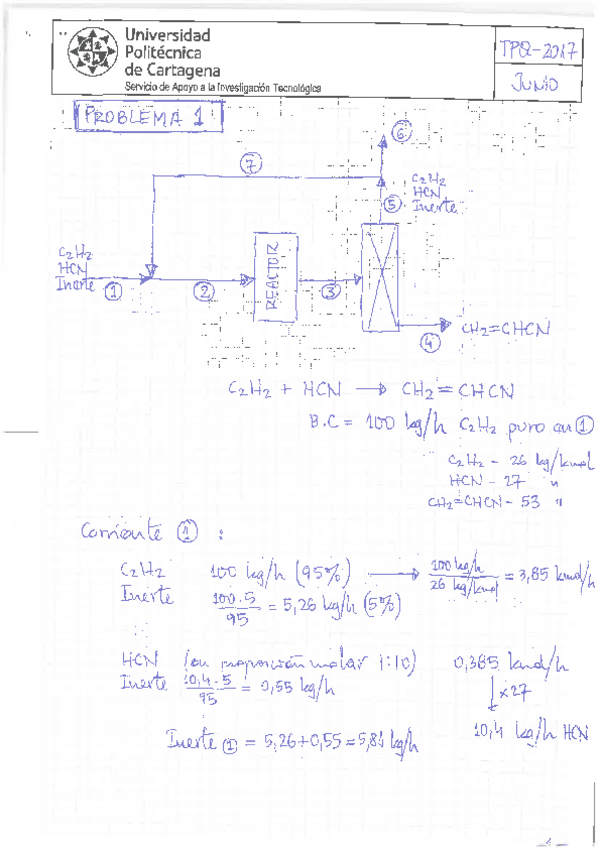 Universidad
Politécnica
de Cartagena
Servicio de Apoyo a la Investigación Tecnológica
TPQ-2017
JUNIO
PROBLEMA 1
6
7
C2H2
HCN
Inerte
5
C2H2
HCN
Inerte
1
2
REACTOR
3
4
CH2=CHCN
C2H2 + HCN → CH2 = CHCN
B.C = 100 kg/h C2H2 puro en ①
C2H2 - 26 kg/kmol
HCN - 27 "
CH2=CHCN - 53 "
Corriente ① :
C2H2 100 kg/h (95%) → 100 kg/h / 26 kg/kmol = 3,85 kmol/h
Inerte 100·5 / 95 = 5,26 kg/h (5%)
HCN (en proporción molar 1:10) 0,385 kmol/h
Inerte 10,4·5 / 95 = 0,55 kg/h
↓ x27
10,4 kg/h HCN
Inerte ① = 5,26+0,55 = 5,81 kg/h